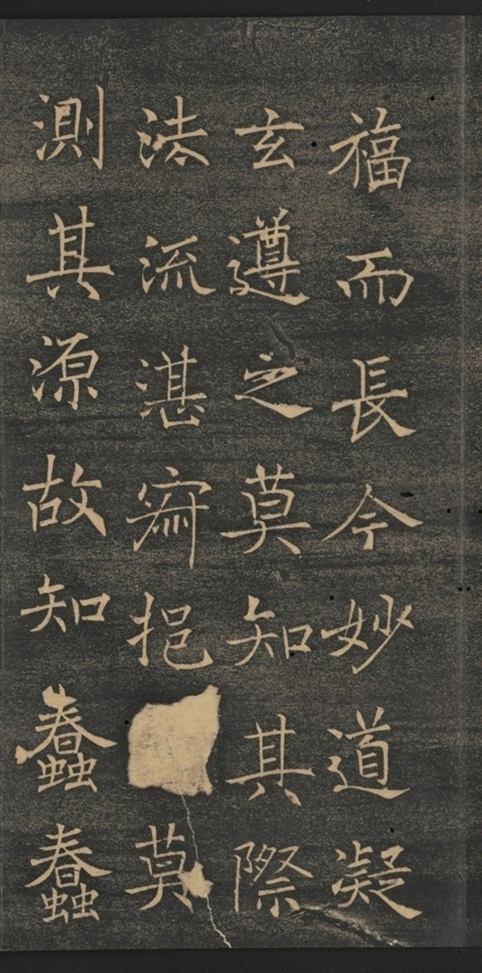 福而長今妙道凝
玄遵之莫知其際
法流湛寂挹莫
測其源故知蠢蠢